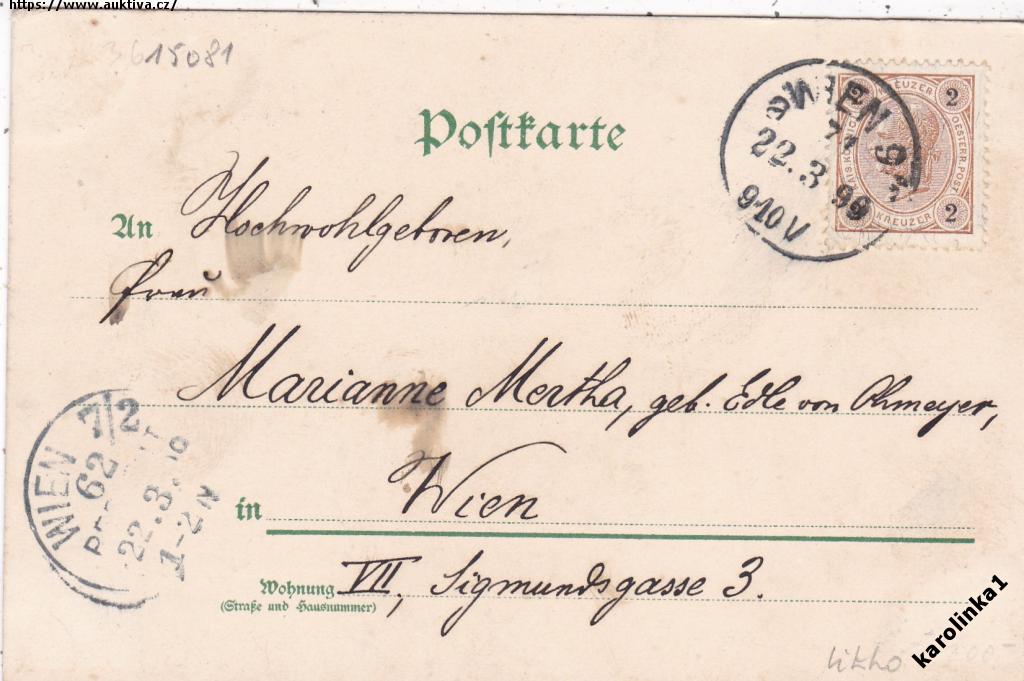 https://www.auktiva.cz/
3615081
Postkarte
WIEN 9/
71
22.3.99
910V
KREUZER
2
KAIS. KÖNIGL.
OESTERR. POST
2
KREUZER
An Hochwohlgeboren,
Frau
Marianne Mertha, geb. Edle von Ohmeyer,
WIEN 7/2
62
22.3.
1-2N
in Wien
Wohnung VII, Sigmundsgasse 3.
(Straße und Hausnummer)
litho
karolinka1